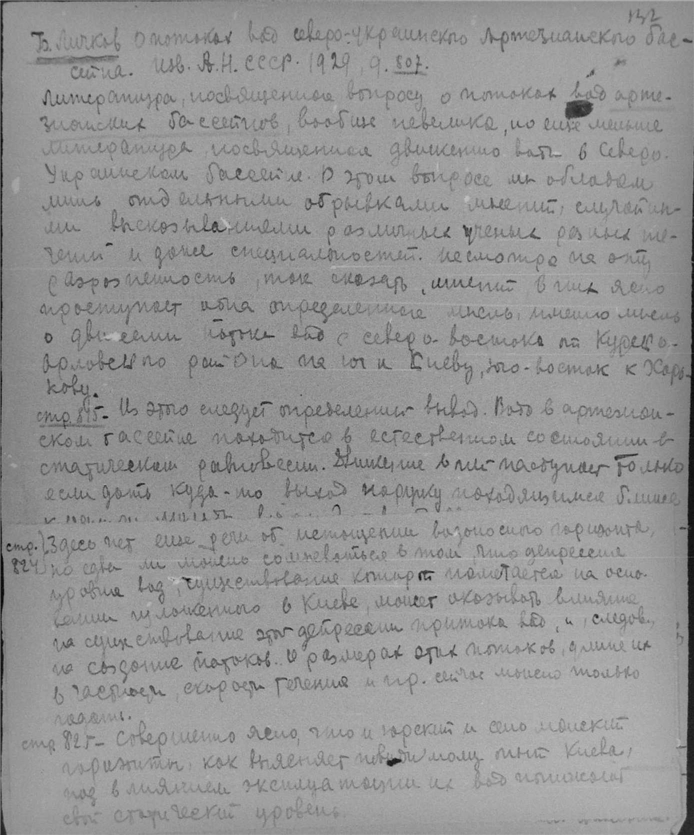 132
Б. Личков О потоках вод северо-украинского артезианского бас-
сейна. Изв. А.Н. СССР. 1929, 9. 807.
Литература, посвященная вопросу о потоках вод арте-
зианских бассейнов, вообще невелика, но еще меньше
литература, посвященная движению воды в Северо-
Украинском бассейне. В этом вопросе мы обладаем
лишь отдельными обрывками мнений, случайны-
ми высказываниями различных ученых разных те-
чений и даже специальностей. Несмотря на эту
разрозненность, так сказать, мнений в них ясно
проступает одна определенная мысль, именно мысль
о движении потока вод с северо-востока от Курско-
Орловского района на юг к Киеву, юго-восток к Харь-
кову.
стр 815- Из этого следует определенный вывод. Вода в артезиан-
ском бассейне находится в естественном состоянии в
статическом равновесии. Движение в ней наступает только
если дать куда-то выход наружу находящимся ближе
стр. Здесь нет еще речи об истощении водоносного горизонта,
824) но едва ли можно сомневаться в том, что депрессия
уровня вод, существование которой намечается на осно-
вании изложенного в Киеве, может оказывать влияние
на существование этой депрессии притока вод, и, следов.,
на создание потоков. О размерах этих потоков, длине их
в частности, скорости течения и пр. сейчас можно только
гадать.
стр 825- Совершенно ясно, что и юрский и сеноманский
горизонты, как выясняет повидимому опыт Киева,
под влиянием эксплуатации их вод понижают
свой статический уровень.